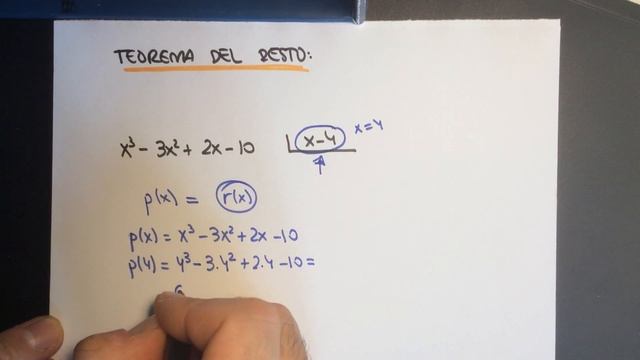 TEOREMA DEL RESTO:
x³ - 3x² + 2x - 10 x-4 x=4
p(x) = r(x)
p(x) = x³ - 3x² + 2x - 10
p(4) = 4³ - 3.4² + 2.4 - 10 =
6